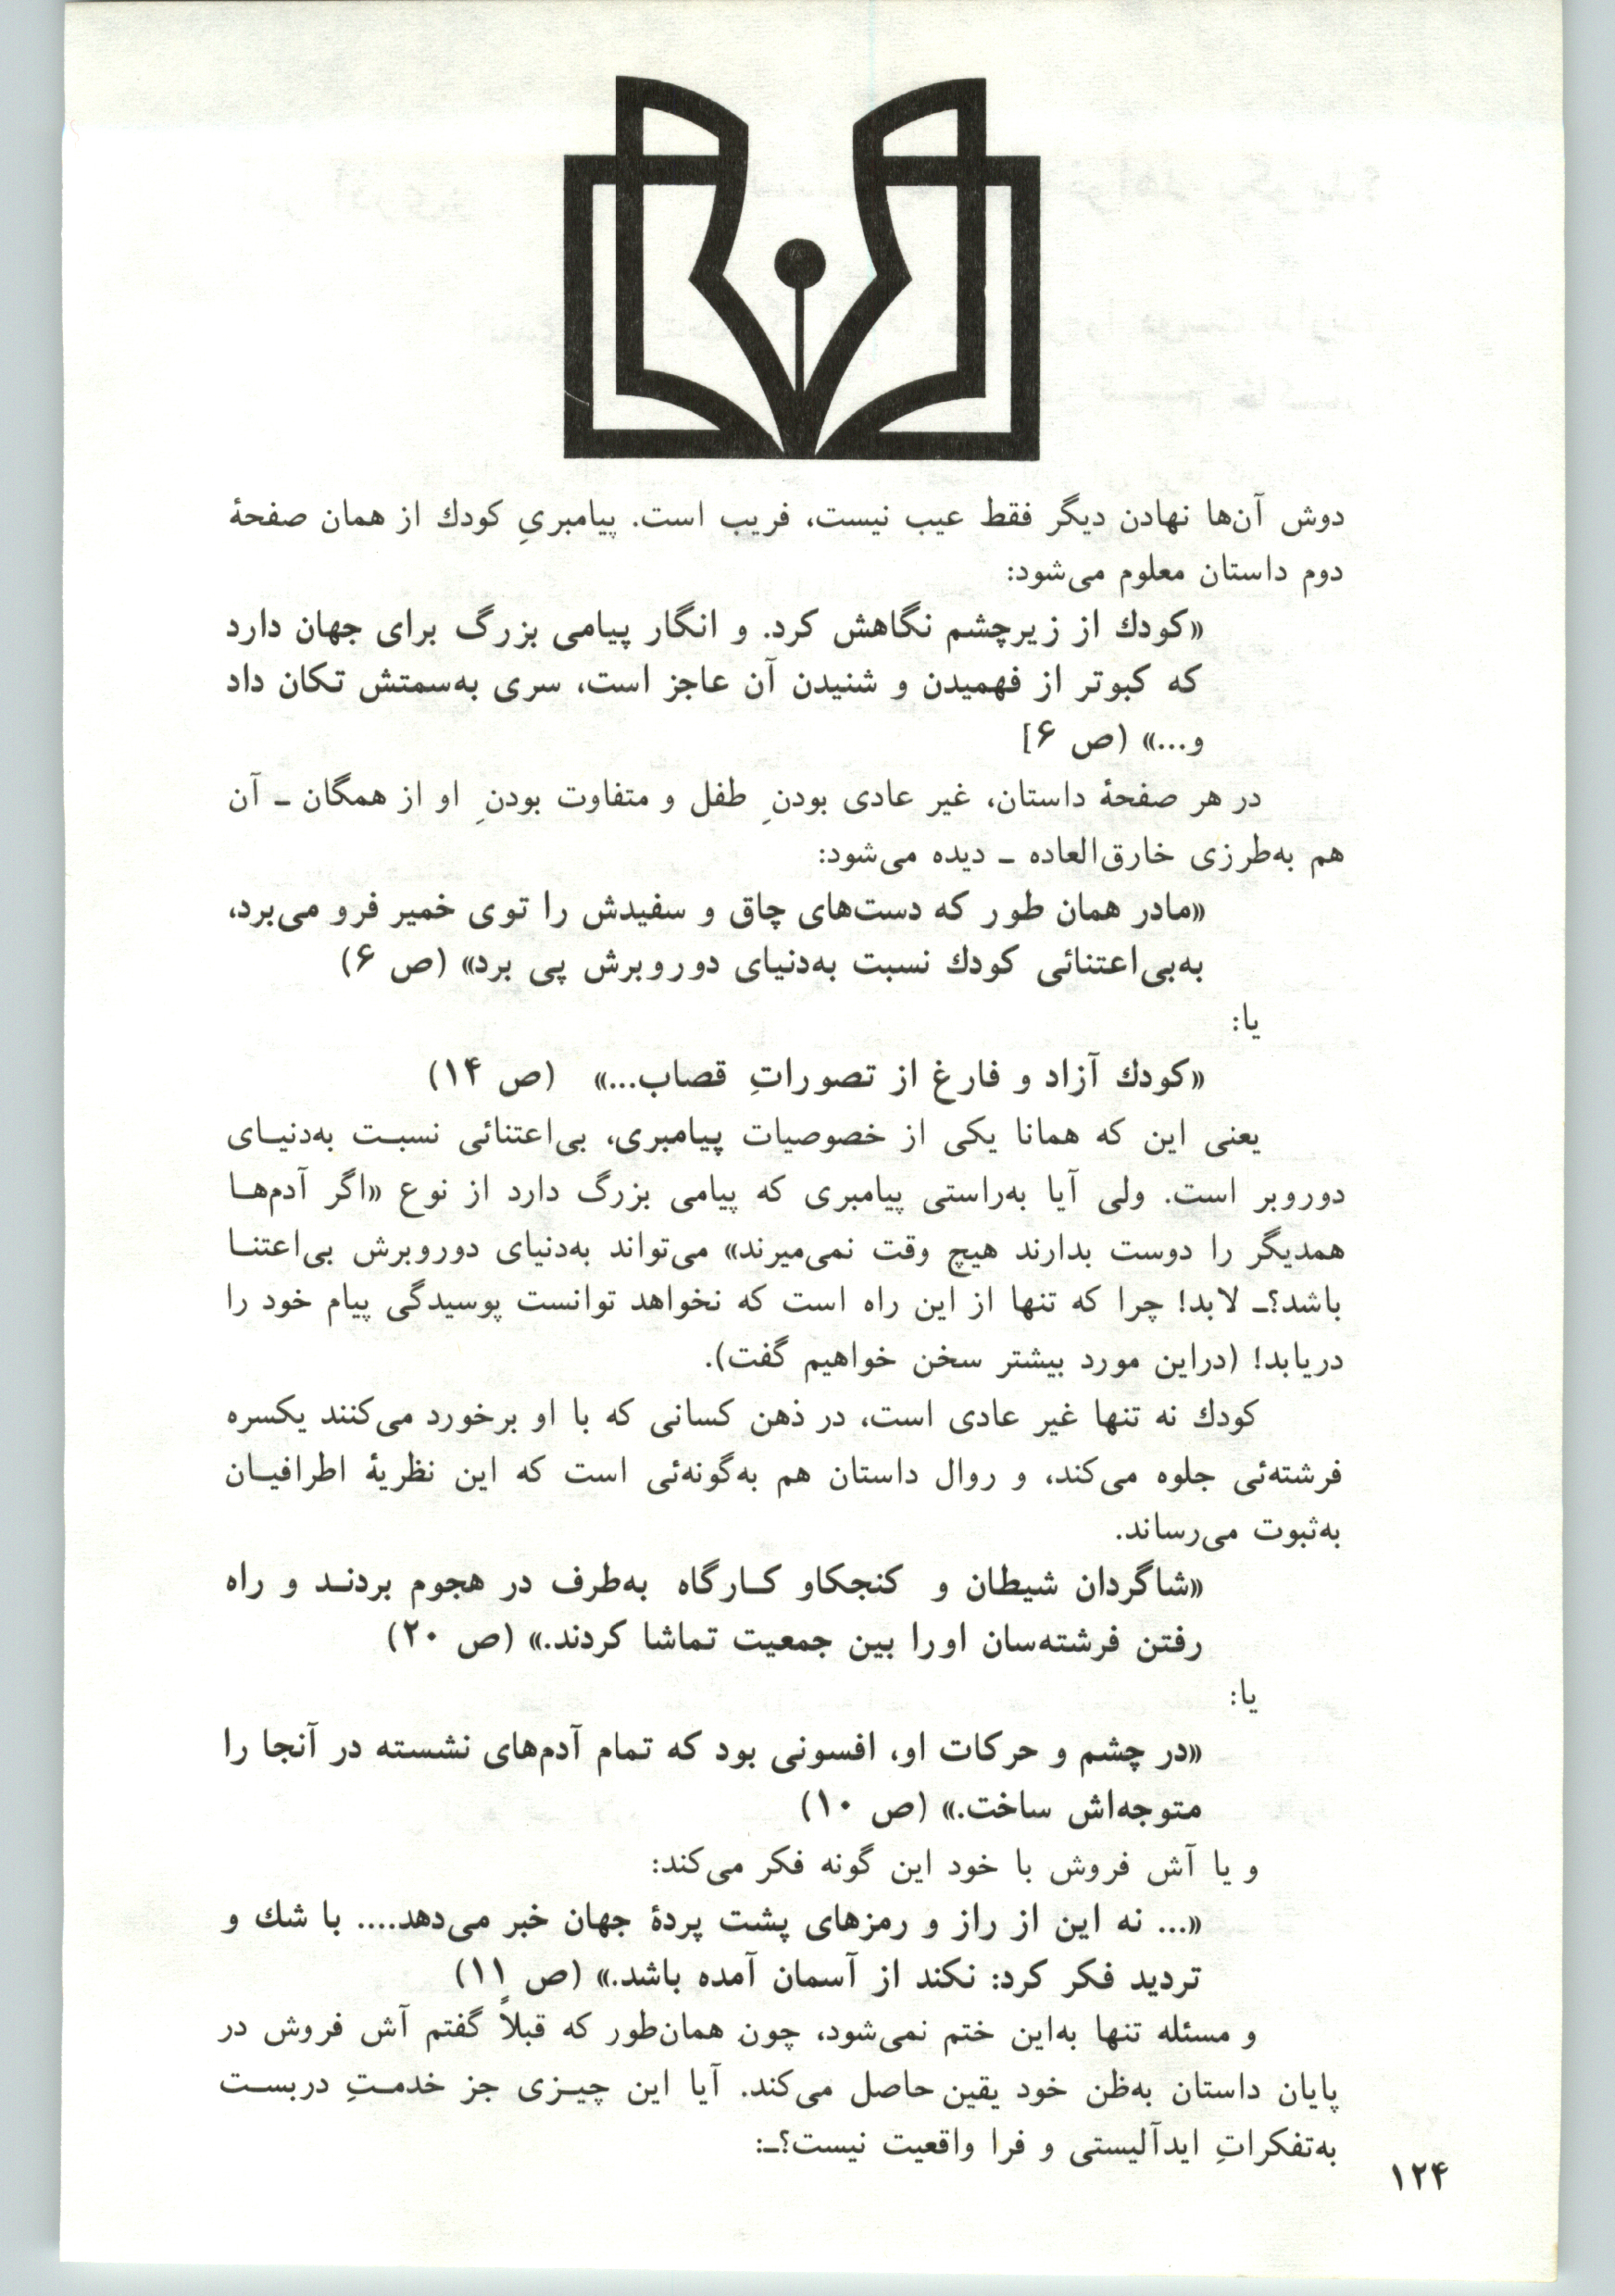 دوش آن‌ها نهادن دیگر فقط عیب نیست، فریب است. پیامبریِ کودك از همان صفحۀ
دوم داستان معلوم می‌شود:
«کودك از زیرچشم نگاهش کرد. و انگار پیامی بزرگ برای جهان دارد
که کبوتر از فهمیدن و شنیدن آن عاجز است، سری به‌سمتش تکان داد
و...» (ص ۶]
در هر صفحۀ داستان، غیر عادی بودنِ طفل و متفاوت بودنِ او از همگان ـ آن
هم به‌طرزی خارق‌العاده ـ دیده می‌شود:
«مادر همان طور که دست‌های چاق و سفیدش را توی خمیر فرو می‌برد،
به‌بی‌اعتنائی کودك نسبت به‌دنیای دوروبرش پی برد» (ص ۶)
یا:
«کودك آزاد و فارغ از تصوراتِ قصاب...» (ص ۱۴)
یعنی این که همانا یکی از خصوصیات پیامبری، بی‌اعتنائی نسبـت به‌دنیـای
دوروبر است. ولی آیا به‌راستی پیامبری که پیامی بزرگ دارد از نوع «اگر آدم‌هـا
همدیگر را دوست بدارند هیچ وقت نمی‌میرند» می‌تواند به‌دنیای دوروبرش بی‌اعتنـا
باشد؟ـ لابد! چرا که تنها از این راه است که نخواهد توانست پوسیدگی پیام خود را
دریابد! (دراین مورد بیشتر سخن خواهیم گفت).
کودك نه تنها غیر عادی است، در ذهن کسانی که با او برخورد می‌کنند یکسره
فرشته‌ئی جلوه می‌کند، و روال داستان هم به‌گونه‌ئی است که این نظریۀ اطرافیـان
به‌ثبوت می‌رساند.
«شاگردان شیطان و کنجکاو کـارگاه به‌طرف در هجوم بردنـد و راه
رفتن فرشته‌سان اورا بین جمعیت تماشا کردند.» (ص ۲۰)
یا:
«در چشم و حرکات او، افسونی بود که تمام آدم‌های نشسته در آنجا را
متوجه‌اش ساخت.» (ص ۱۰)
و یا آش فروش با خود این گونه فکر می‌کند:
«... نه این از راز و رمزهای پشت پردۀ جهان خبر می‌دهد.... با شك و
تردید فکر کرد: نکند از آسمان آمده باشد.» (ص ۱۱)
و مسئله تنها به‌این ختم نمی‌شود، چون همان‌طور که قبلاً گفتم آش فروش در
پایان داستان به‌ظن خود یقین حاصل می‌کند. آیا این چیـزی جز خدمـتِ دربسـت
به‌تفکراتِ ایدآلیستی و فرا واقعیت نیست؟ـ:
۱۲۴